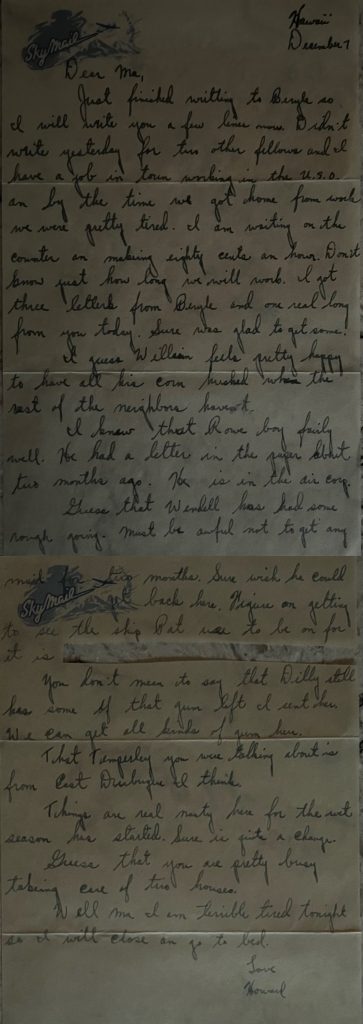 Sky Mail
Hawaii
December 7
Dear Ma,
Just finished writting to Beryle so
I will write you a few lines now. Didn't
write yesterday for two other fellows and I
have a job in town working in the U.S.O.
an by the time we got home from work
we were pretty tired. I am waiting on the
counter an making eighty cents an hour. Don't
know just how long we will work. I got
three letters from Beryle and one real long
from you today. Sure was glad to get some.
I guess William feels pretty happy
to have all his corn husked when the
rest of the neighbors haven't.
I knew that Rowe boy fairly
well. He had a letter in the paper about
two months ago. He is in the air corp.
Guess that Wendell has had some
rough going. Must be awful not to get any
mail for two months. Sure wish he could
Sky Mail
get back here. Figure on getting
to see the ship Pat use to be on for
it is
You don't mean to say that Dilly still
has some of that gum left I sent her.
We can get all kinds of gum here.
That Temperley you were talking about is
from East Dubuque I think.
Things are real nasty here for the wet
season has started. Sure is quite a change.
Guess that you are pretty busy
takeing care of two houses.
Well ma I am terrible tired tonight
so I will close an go to bed.
Love
Howard